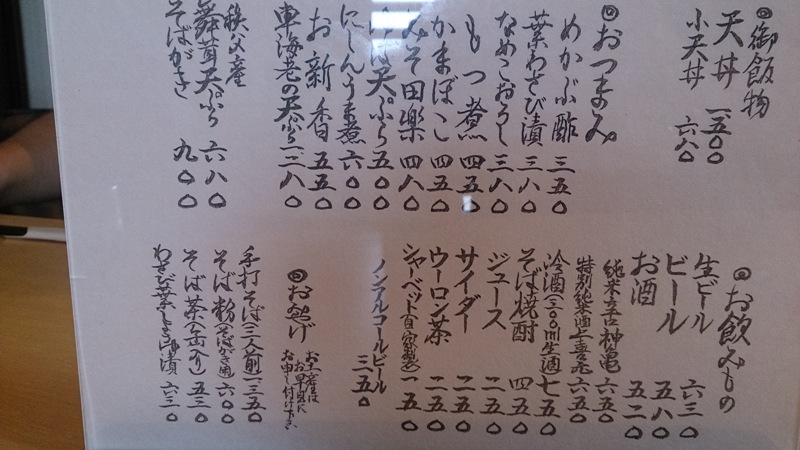 ◎御飯物
天丼 一、五〇〇
小天丼 六八〇
◎おつまみ
めかぶ酢 三五〇
葉わさび漬 三八〇
なめこおろし 三八〇
もつ煮 四五〇
かまぼこ 四五〇
みそ田楽 四八〇
天ぷら 五〇〇
にしんうま煮 六〇〇
お新香 五五〇
車海老の天ぷら 一二八〇
秩父産
舞茸天ぷら 六八〇
そばがき 九〇〇
◎お飲みもの
生ビール 六三〇
ビール 五八〇
お酒 五二〇
純米辛口神亀 六五〇
特別純米酒上喜元 六五〇
冷酒(三〇〇ml生酒) 七五〇
そば焼酎 四五〇
ジュース 二五〇
サイダー 二五〇
ウーロン茶 二五〇
シャーベット(自家製) 一五〇
ノンアルコールビール
三五〇
◎お土産
お土産は
お早目に
お申し付け下さい
手打そば(三人前) 一三五〇
そば粉(そばがき用) 六〇〇
そば茶(缶入り) 五三〇
わさび葉 漬 六三〇